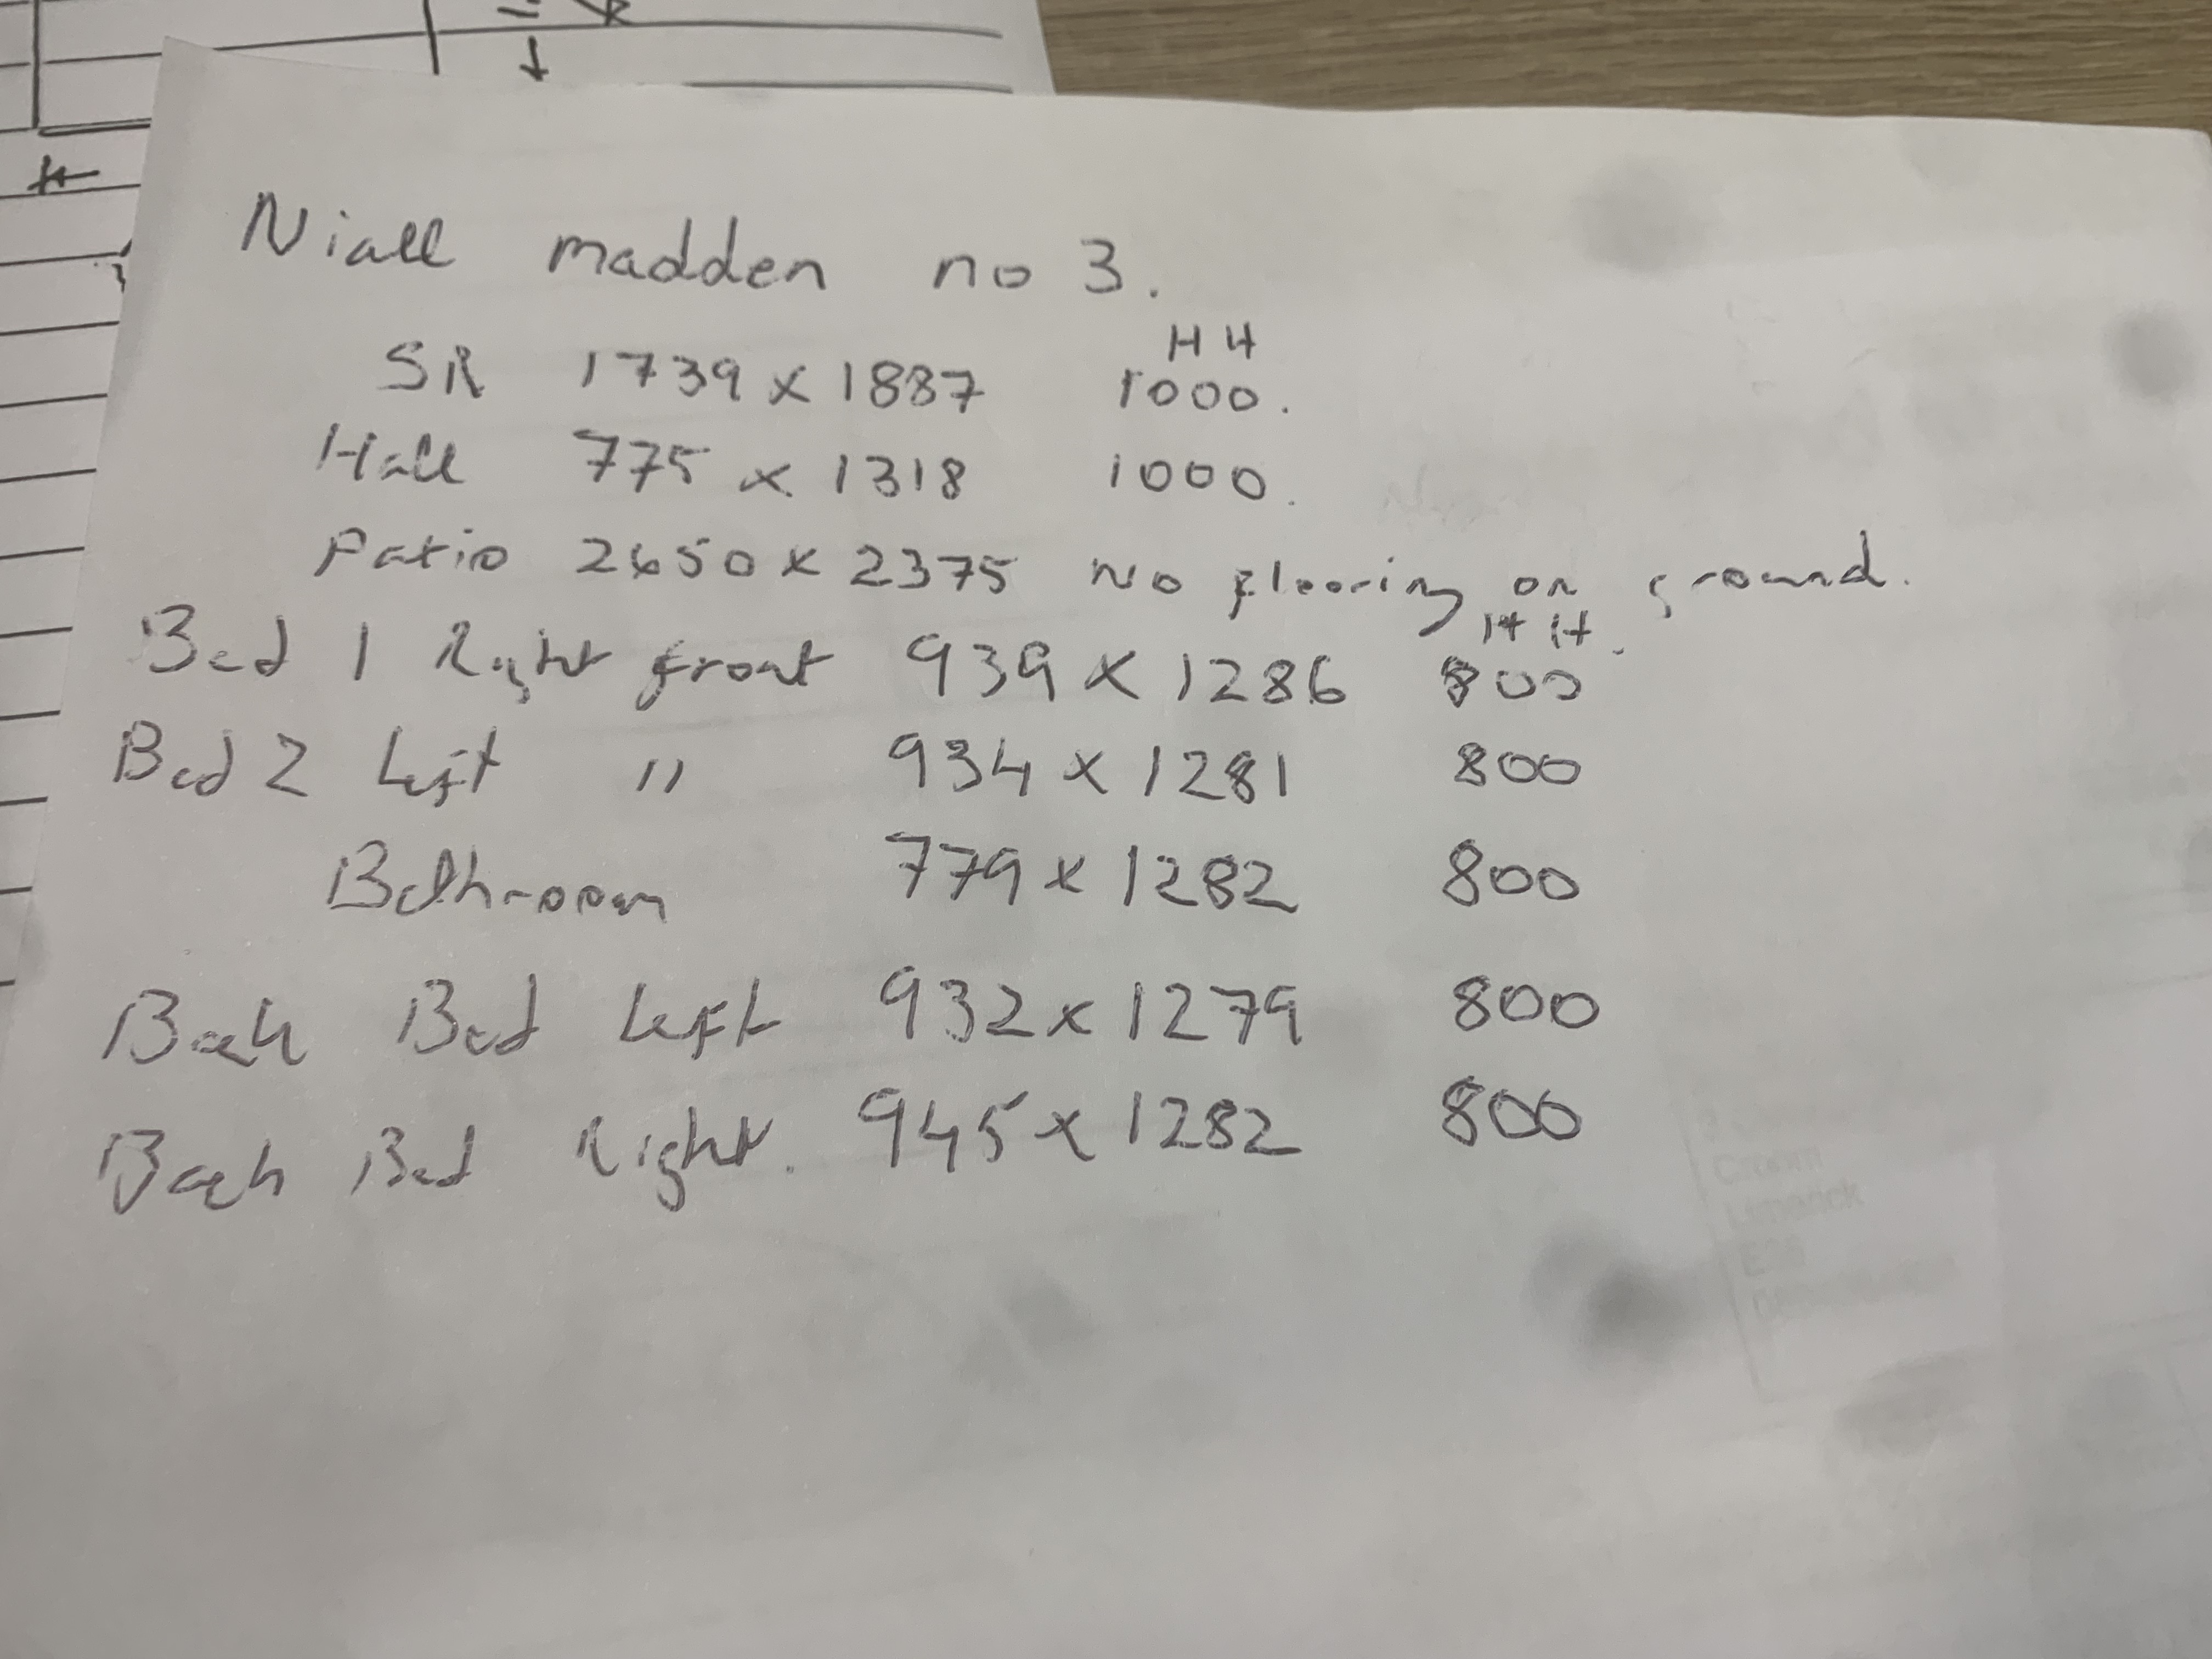 Niall madden no 3.
HH
SR 1739 x 1887 1000.
Hall 775 x 1318 1000.
Patio 2650 x 2375 no flooring on ground.
HH.
Bed 1 Right front 939 x 1286 800
Bed 2 Left " 934 x 1281 800
Bathroom 779 x 1282 800
Back Bed Left 932 x 1279 800
Back Bed Right. 945 x 1282 800
Limerick